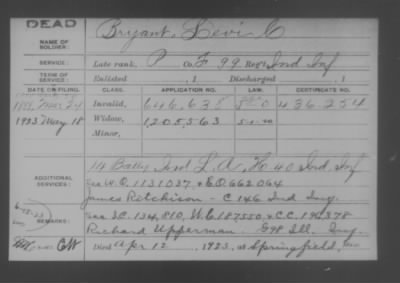 DEAD
NAME OF SOLDIER: Bryant, Levi C
SERVICE: Late rank, P Co. F 99 Reg't Ind Inf
TERM OF SERVICE: Enlisted , 1 Discharged , 1
DATE OF FILING. CLASS. APPLICATION NO. LAW. CERTIFICATE NO.
Invalid, 646,638 436,254
1923 May 18 Widow, 1,205,563 5-1-20
Minor,
ADDITIONAL SERVICES: 14 Batty Ind L. A., Co 40 Ind Inf
See W.O. 1131037, & E.O. 662064
James Ritchison - C 146 Ind Inf.
REMARKS: See I.C. 134,810, W.C. 187550, & C.C. 378
Richard Upperman G 98 Ill. Inf.
Died Apr 12, 1923, at Springfield,